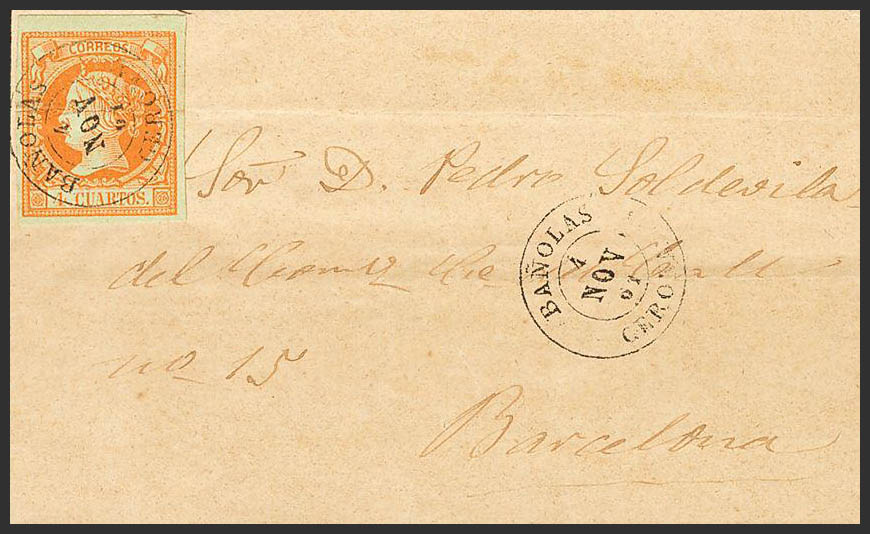 CORREOS
4 CUARTOS.
BAÑOLAS
4
NOV
61
GERONA
Sor D. Pedro Soldevila
del
no 15
Barcelona
BAÑOLAS
4
NOV
61
GERONA